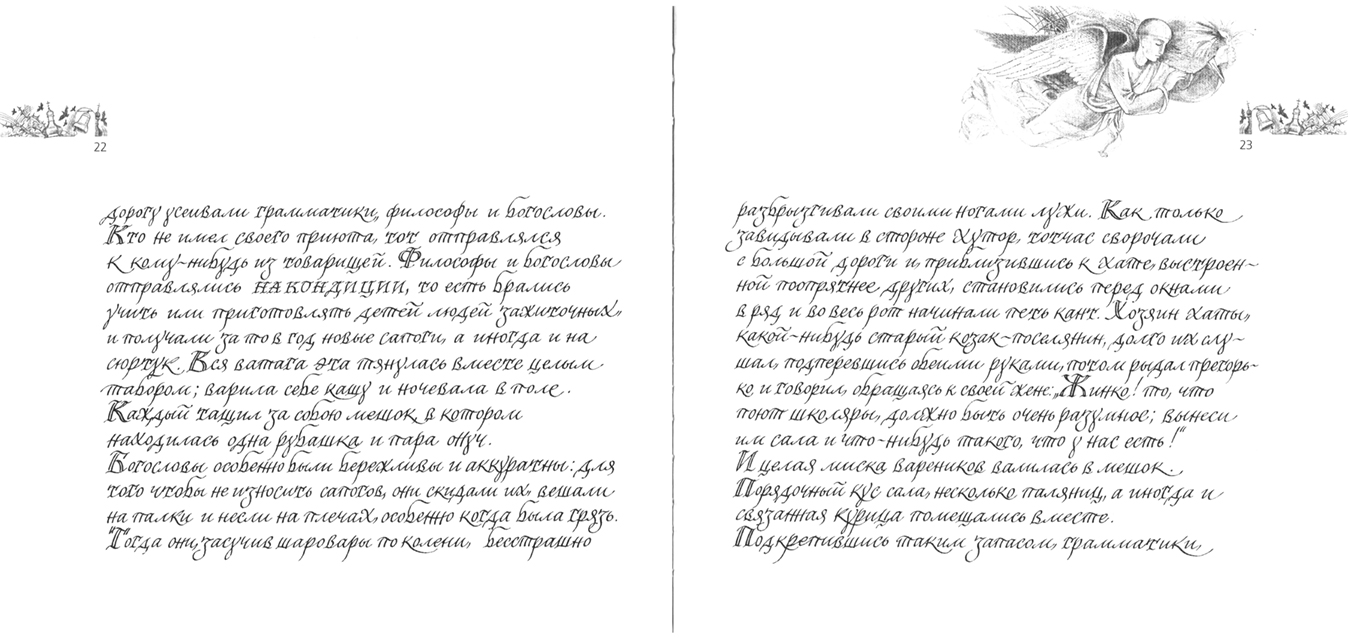 22
дорогу усеивали грамматики, философы и богословы.
Кто не имел своего приюта, тот отправлялся
к кому-нибудь из товарищей. Философы и богословы
отправлялись НА КОНДИЦИИ, то есть брались
учить или приготовлять детей людей зажиточных,
и получали за то в год новые сапоги, а иногда и на
сюртук. Вся ватага эта тянулась вместе целым
табором; варила себе кашу и ночевала в поле.
Каждый тащил за собою мешок, в котором
находилась одна рубашка и пара онуч.
Богословы особенно были бережливы и аккуратны: для
того чтобы не износить сапогов, они скидали их, вешали
на палки и несли на плечах, особенно когда была грязь.
Тогда они, засучив шаровары по колени, бесстрашно
23
разбрызгивали своими ногами лужи. Как только
завидывали в стороне хутор, тотчас сворочали
с большой дороги и, приблизившись к хате, выстроен-
ной поопрятнее других, становились перед окнами
в ряд и во весь рот начинали петь кант. Хозяин хаты,
какой-нибудь старый козак-поселянин, долго их слу-
шал, подпершись обеими руками, потом рыдал прегорь-
ко и говорил, обращаясь к своей жене: „Жинко! то, что
поют школяры, должно быть очень разумное; вынеси
им сала и что-нибудь такого, что у нас есть!“
И целая миска вареников валилась в мешок.
Порядочный кус сала, несколько паляниц, а иногда и
связанная курица помещались вместе.
Подкрепившись таким запасом, грамматики,